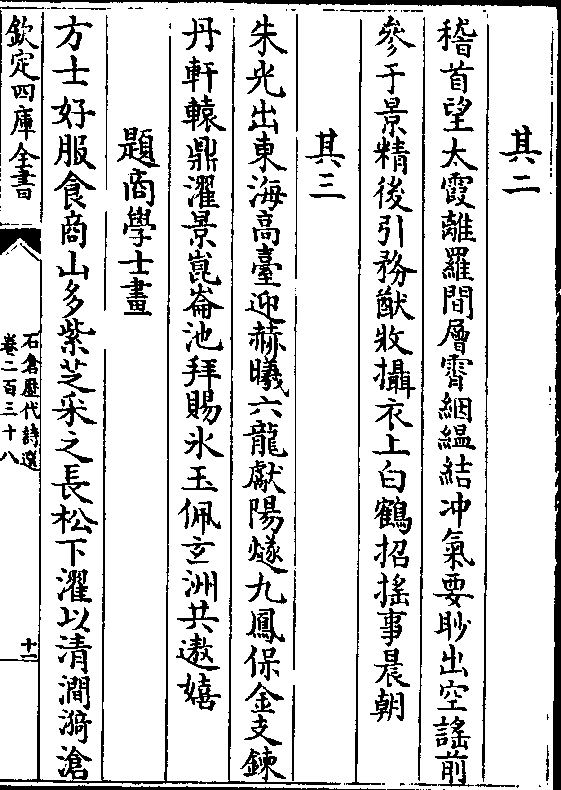 其二
稽首望太霞離羅間層霄絪緼結冲氣要眇出空謠前
參于景精後引務猷收攝衣上白鶴招搖事晨朝
其三
朱光出東海高臺迎赫曦六龍獻陽燧九鳳保金支鍊
丹軒轅鼎濯景崑崙池拜賜氷玉佩玄洲共遨嬉
題商學士畫
方士好服食商山多紫芝采之長松下濯以清澗漪滄
欽定四庫全書
石倉歷代詩選
卷二百三十八
十二